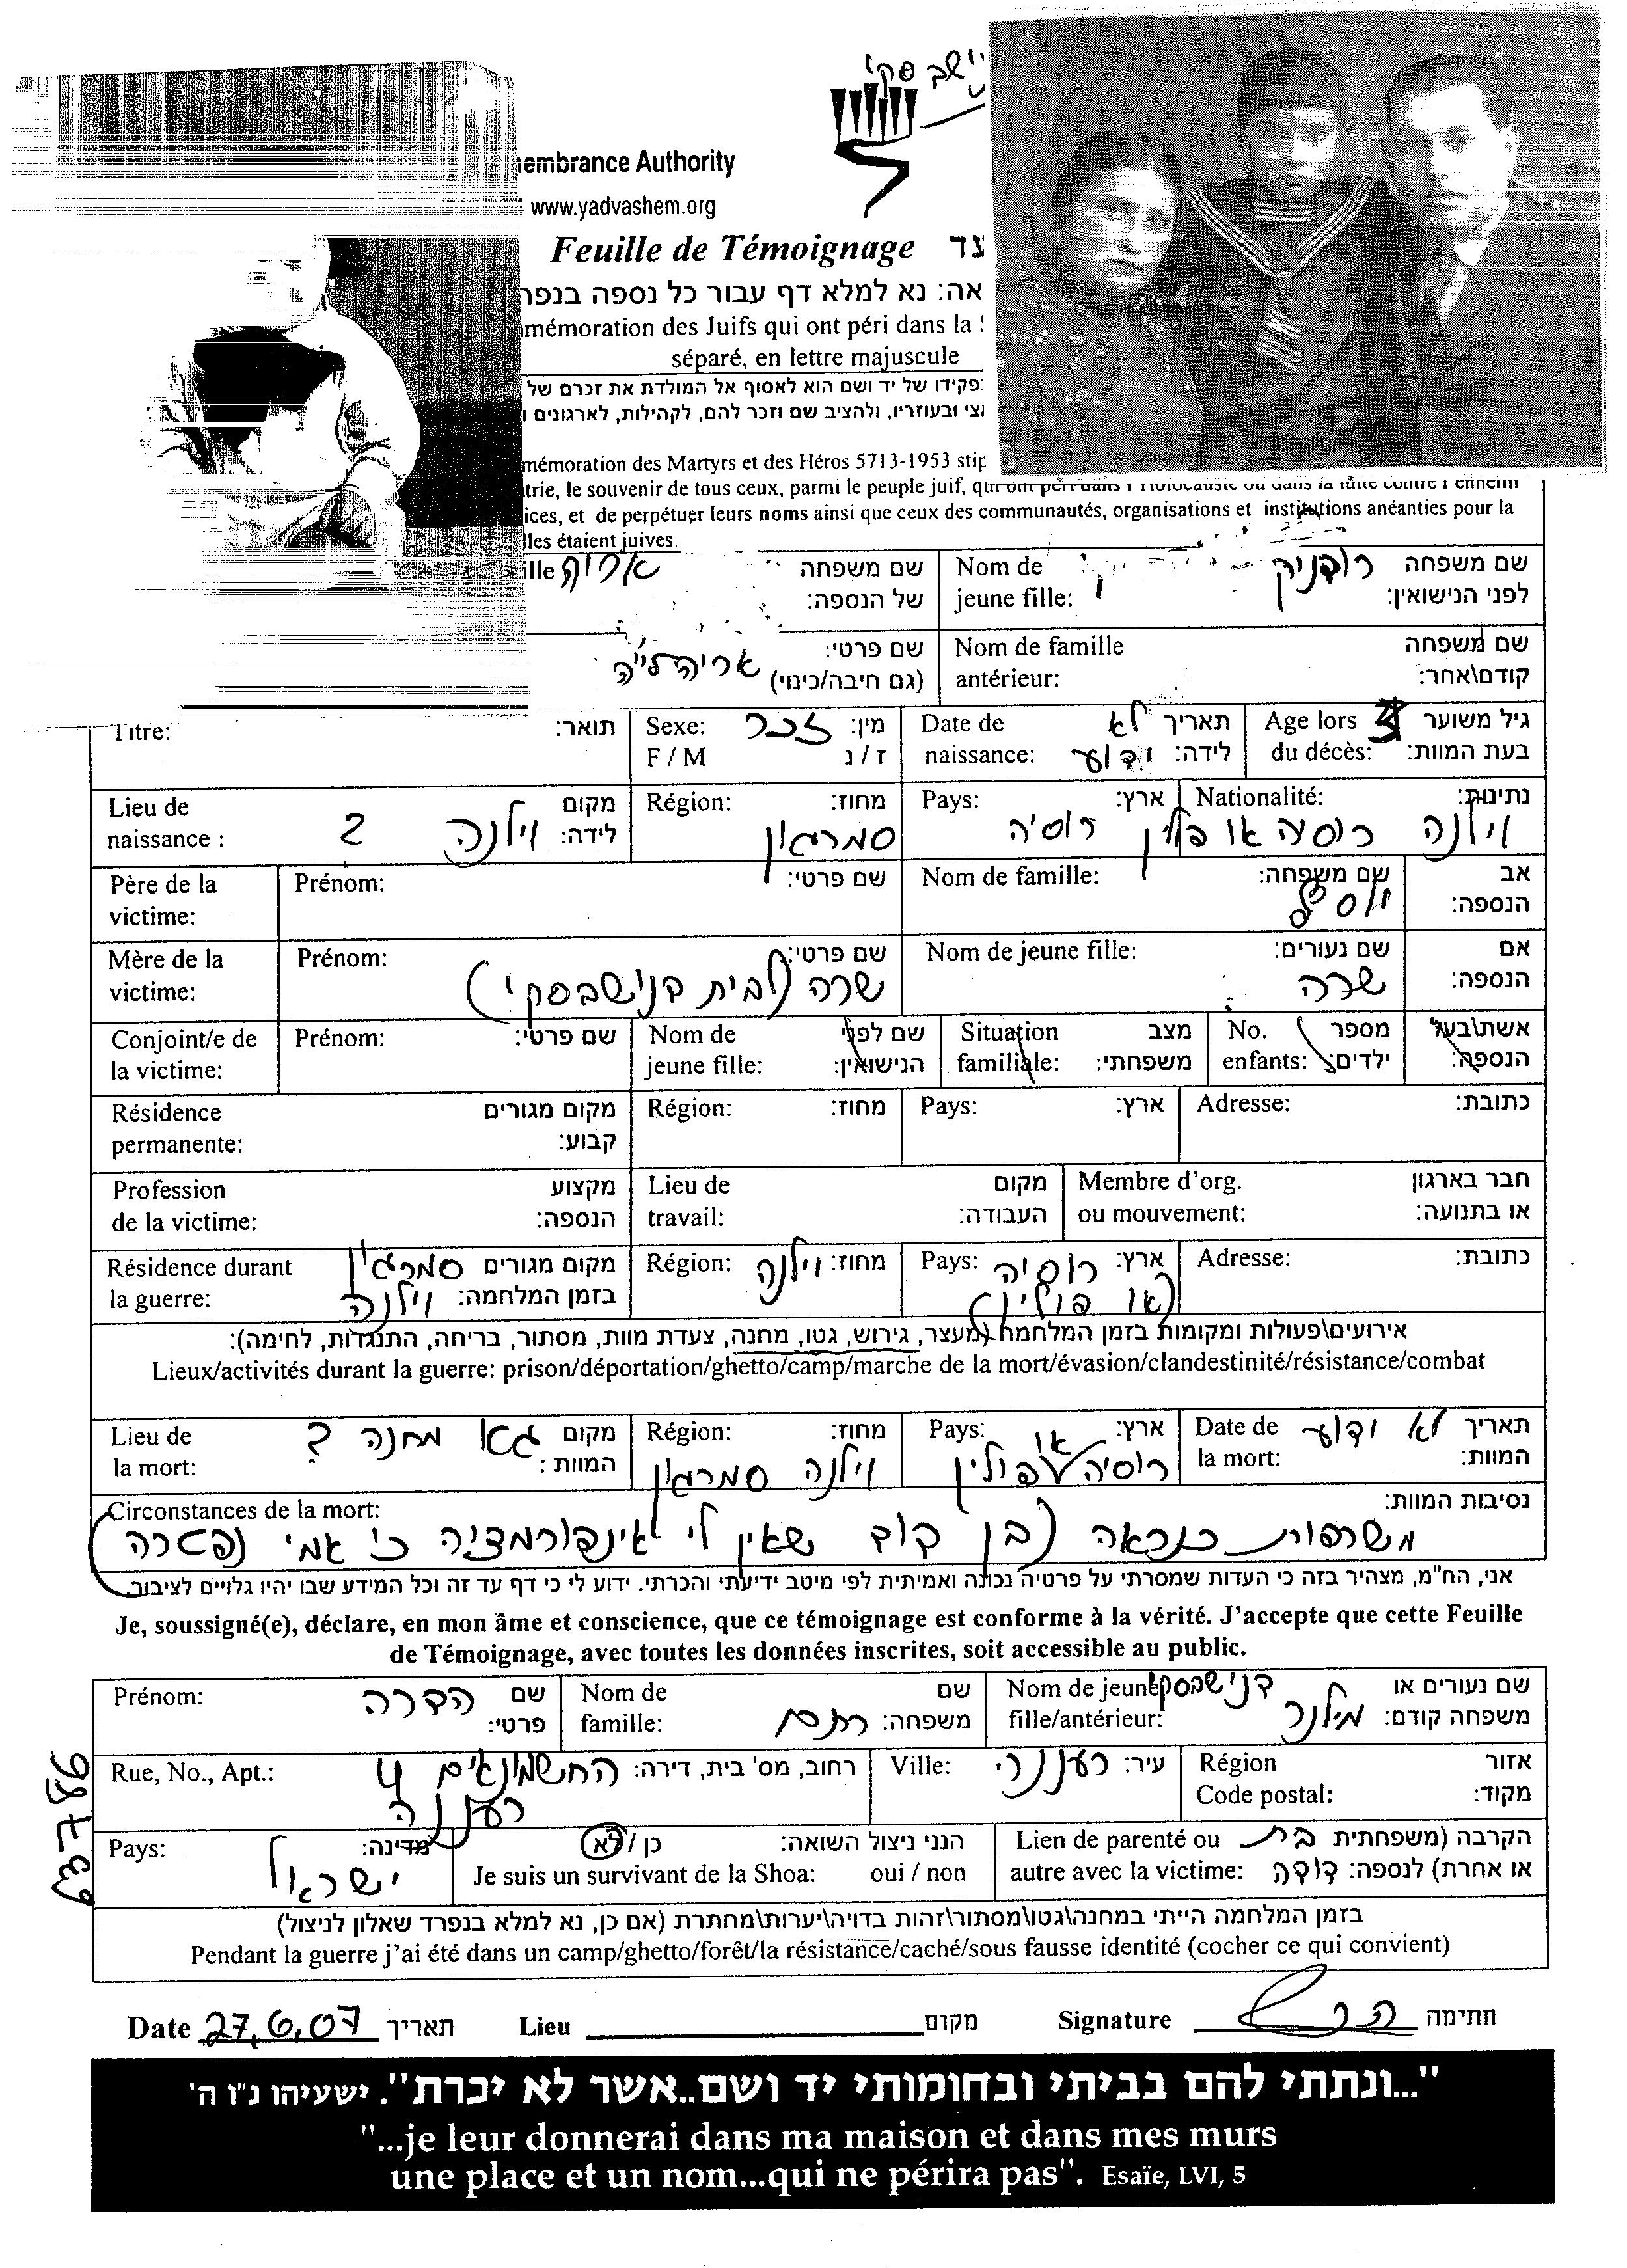 ישבסקי
membrance Authority
www.yadvashem.org
Feuille de Témoignage
אה: נא למלא דף עבור כל נספה בנפר
mémoration des Juifs qui ont péri dans la
séparé, en lettre majuscule
פקידו של יד ושם הוא לאסוף אל המולדת את זכרם של
ולהציב שם וזכר להם, לקהילות, לארגונים ו
mémoration des Martyrs et des Héros 5713-1953 stip
trie, le souvenir de tous ceux, parmi le peuple juif, qui ont péri dans l'Holocauste ou dans la lutte contre l'ennemi
ices, et de perpétuer leurs noms ainsi que ceux des communautés, organisations et institutions anéanties pour la
lles étaient juives.
שם משפחה לפני הנישואין: רודניק Nom de jeune fille:
שם משפחה של הנספה: lle
שם משפחה קודם\אחר: Nom de famille antérieur:
שם פרטי: (גם חיבה/כינוי) אריה
גיל משוער בעת המוות: Age lors du décès:
תאריך לידה: לא ידוע Date de naissance:
מין: ז / נ זכר Sexe: F / M
תואר: Titre:
נתינות: Nationalité: וילנה רוסיה או פולין
ארץ: Pays: רוסיה
מחוז: Région: סמרגון
מקום לידה: וילנה ? Lieu de naissance :
אב הנספה: שם משפחה: Nom de famille: יוסף
שם פרטי: Prénom: Père de la victime:
אם הנספה: שם נעורים: Nom de jeune fille: שרה
שם פרטי: Prénom: שרה (לבית דנישבסקי) Mère de la victime:
אשת\בעל הנספה: מספר ילדים: No. enfants: מצב משפחתי: Situation familiale:
שם לפני הנישואין: Nom de jeune fille: שם פרטי: Prénom: Conjoint/e de la victime:
כתובת: Adresse: ארץ: Pays: מחוז: Région: מקום מגורים קבוע: Résidence permanente:
חבר בארגון או בתנועה: Membre d'org. ou mouvement: מקום העבודה: Lieu de travail: מקצוע הנספה: Profession de la victime:
כתובת: Adresse: ארץ: Pays: רוסיה (או פולין)
מחוז: Région: וילנה
מקום מגורים בזמן המלחמה: סמרגון וילנה Résidence durant la guerre:
אירועים\פעולות ומקומות בזמן המלחמה (מעצר, גירוש, גטו, מחנה, צעדת מוות, מסתור, בריחה, התנגדות, לחימה):
Lieux/activités durant la guerre: prison/déportation/ghetto/camp/marche de la mort/évasion/clandestinité/résistance/combat
תאריך המוות: לא ידוע Date de la mort:
ארץ: Pays: רוסיה או פולין
מחוז: Région: וילנה סמרגון
מקום המוות: מחנה ? Lieu de la mort:
נסיבות המוות: Circonstances de la mort:
משרפות כנראה (בן דוד שאין לי אינפורמציה כי אמי נפטרה)
אני, הח"מ, מצהיר בזה כי העדות שמסרתי על פרטיה נכונה ואמיתית לפי מיטב ידיעתי והכרתי. ידוע לי כי דף עד זה וכל המידע שבו יהיו גלויים לציבור.
Je, soussigné(e), déclare, en mon âme et conscience, que ce témoignage est conforme à la vérité. J'accepte que cette Feuille
de Témoignage, avec toutes les données inscrites, soit accessible au public.
שם נעורים או משפחה קודם: דנישבסקי מילנר Nom de jeune fille/antérieur:
שם משפחה: רותם Nom de famille:
שם פרטי: הדרה Prénom:
אזור מקוד: Région Code postal:
עיר: רעננה Ville:
רחוב, מס' בית, דירה: החשמונאים 4 רעננה Rue, No., Apt.:
הקרבה (משפחתית או אחרת) לנספה: בת דודה Lien de parenté ou autre avec la victime:
הנני ניצול השואה: כן / לא Je suis un survivant de la Shoa: oui / non
מדינה: ישראל Pays:
בזמן המלחמה הייתי במחנה\גטו\מסתור\זהות בדויה\יערות\מחתרת (אם כן, נא למלא בנפרד שאלון לניצול)
Pendant la guerre j'ai été dans un camp/ghetto/forêt/la résistance/caché/sous fausse identité (cocher ce qui convient)
Date 27.6.07 תאריך Lieu מקום Signature חתימה
"...ונתתי להם בביתי ובחומותי יד ושם..אשר לא יכרת". ישעיהו נ"ו ה'
"...je leur donnerai dans ma maison et dans mes murs
une place et un nom...qui ne périra pas". Esaïe, LVI, 5